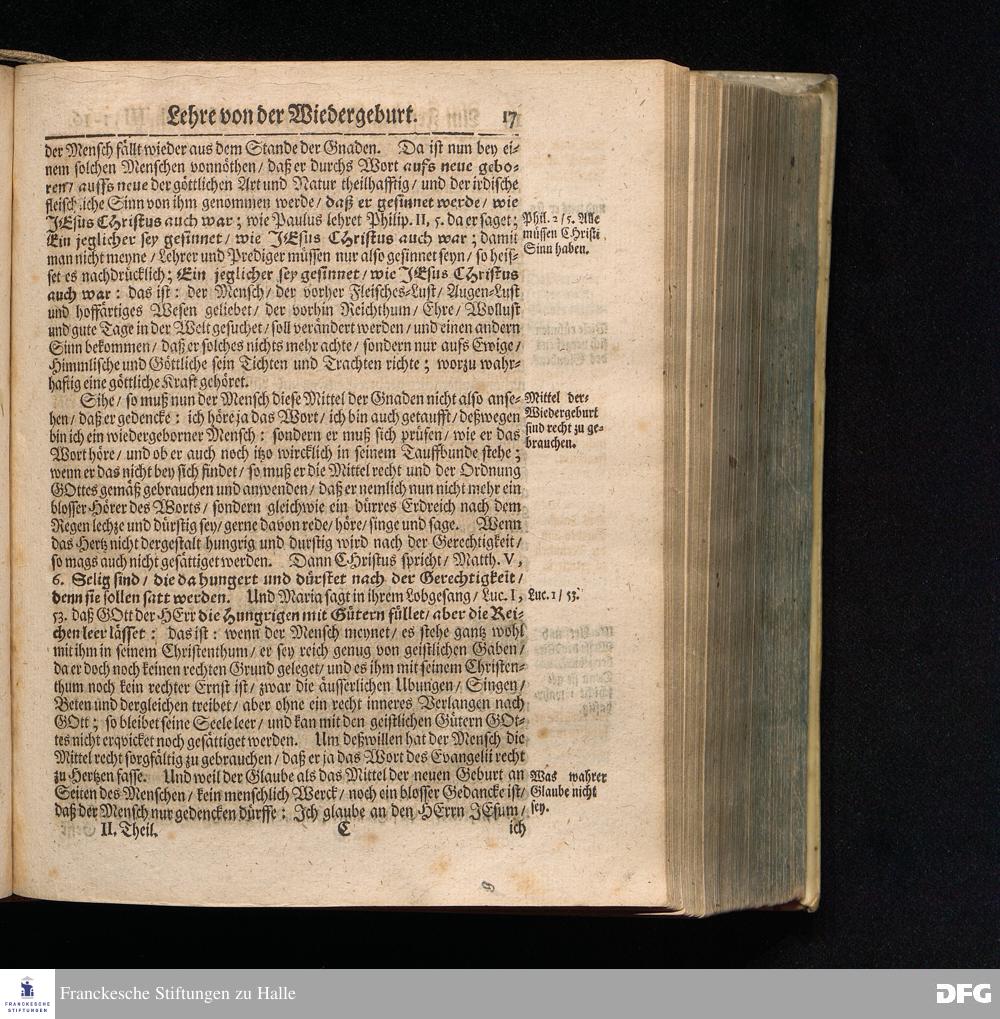 Lehre von der Wiedergeburt. 17
der Mensch fällt wieder aus dem Stande der Gnaden. Da ist nun bey ei-
nem solchen Menschen vonnöthen / daß er durchs Wort aufs neue gebo-
ren / auffs neue der göttlichen Art und Natur theilhafftig / und der irdische
fleischliche Sinn von ihm genommen werde / daß er gesinnet werde / wie
JEsus Christus auch war; wie Paulus lehret Philip. II, 5. da er saget;
Ein jeglicher sey gesinnet / wie JEsus Christus auch war; damit
man nicht meyne / Lehrer und Prediger müssen nur also gesinnet seyn / so heis-
set es nachdrücklich; Ein jeglicher sey gesinnet / wie JEsus Christus
auch war: das ist: der Mensch / der vorher Fleisches-Lust / Augen-Lust
und hoffärtiges Wesen geliebet / der vorhin Reichthum / Ehre / Wollust
und gute Tage in der Welt gesuchet / soll verändert werden / und einen andern
Sinn bekommen / daß er solches nichts mehr achte / sondern nur aufs Ewige /
Himmlische und Göttliche sein Tichten und Trachten richte; worzu wahr-
hafftig eine göttliche Kraft gehöret.
Phil. 2 / 5. Alle
müssen Christi
Sinn haben.
Sihe / so muß nun der Mensch diese Mittel der Gnaden nicht also anse-
hen / daß er gedencke: ich höre ja das Wort / ich bin auch getaufft / deßwegen
bin ich ein wiedergeborner Mensch: sondern er muß sich prüfen / wie er das
Wort höre / und ob er auch noch itzo wircklich in seinem Tauffbunde stehe;
wenn er das nicht bey sich findet / so muß er die Mittel recht und der Ordnung
GOttes gemäß gebrauchen und anwenden / daß er nemlich nun nicht mehr ein
blosser Hörer des Worts / sondern gleichwie ein dürres Erdreich nach dem
Regen lechze und dürstig sey / gerne davon rede / höre / singe und sage. Wenn
das Hertz nicht dergestalt hungrig und durstig wird nach der Gerechtigkeit /
so mags auch nicht gesättiget werden. Dann Christus spricht / Matth. V,
6. Selig sind / die da hungert und dürstet nach der Gerechtigkeit /
denn sie sollen satt werden. Und Maria sagt in ihrem Lobgesang / Luc. I,
53. daß GOtt der HErr die Hungrigen mit Gütern füllet / aber die Rei-
chen leer lässet: das ist: wenn der Mensch meynet / es stehe gantz wohl
mit ihm in seinem Christenthum / er sey reich genug von geistlichen Gaben /
da er doch noch keinen rechten Grund geleget / und es ihm mit seinem Christen-
thum noch kein rechter Ernst ist / zwar die äusserlichen Ubungen / Singen /
Beten und dergleichen treibet / aber ohne ein recht inneres Verlangen nach
GOtt; so bleibet seine Seele leer / und kan mit den geistlichen Gütern GOt-
tes nicht erqvicket noch gesättiget werden. Um deßwillen hat der Mensch die
Mittel recht sorgfältig zu gebrauchen / daß er ja das Wort des Evangelii recht
zu Hertzen fasse. Und weil der Glaube als das Mittel der neuen Geburt an
Seiten des Menschen / kein menschlich Werck / noch ein blosser Gedancke ist /
daß der Mensch nur gedencken dürffe: Ich glaube an den HErrn JEsum /
Mittel der
Wiedergeburt
sind recht zu ge-
brauchen.
Luc. 1 / 53.
Was wahrer
Glaube nicht
sey.
II. Theil. C ich
Franckesche Stiftungen zu Halle
FRANCKESCHE
STIFTUNGEN
DFG